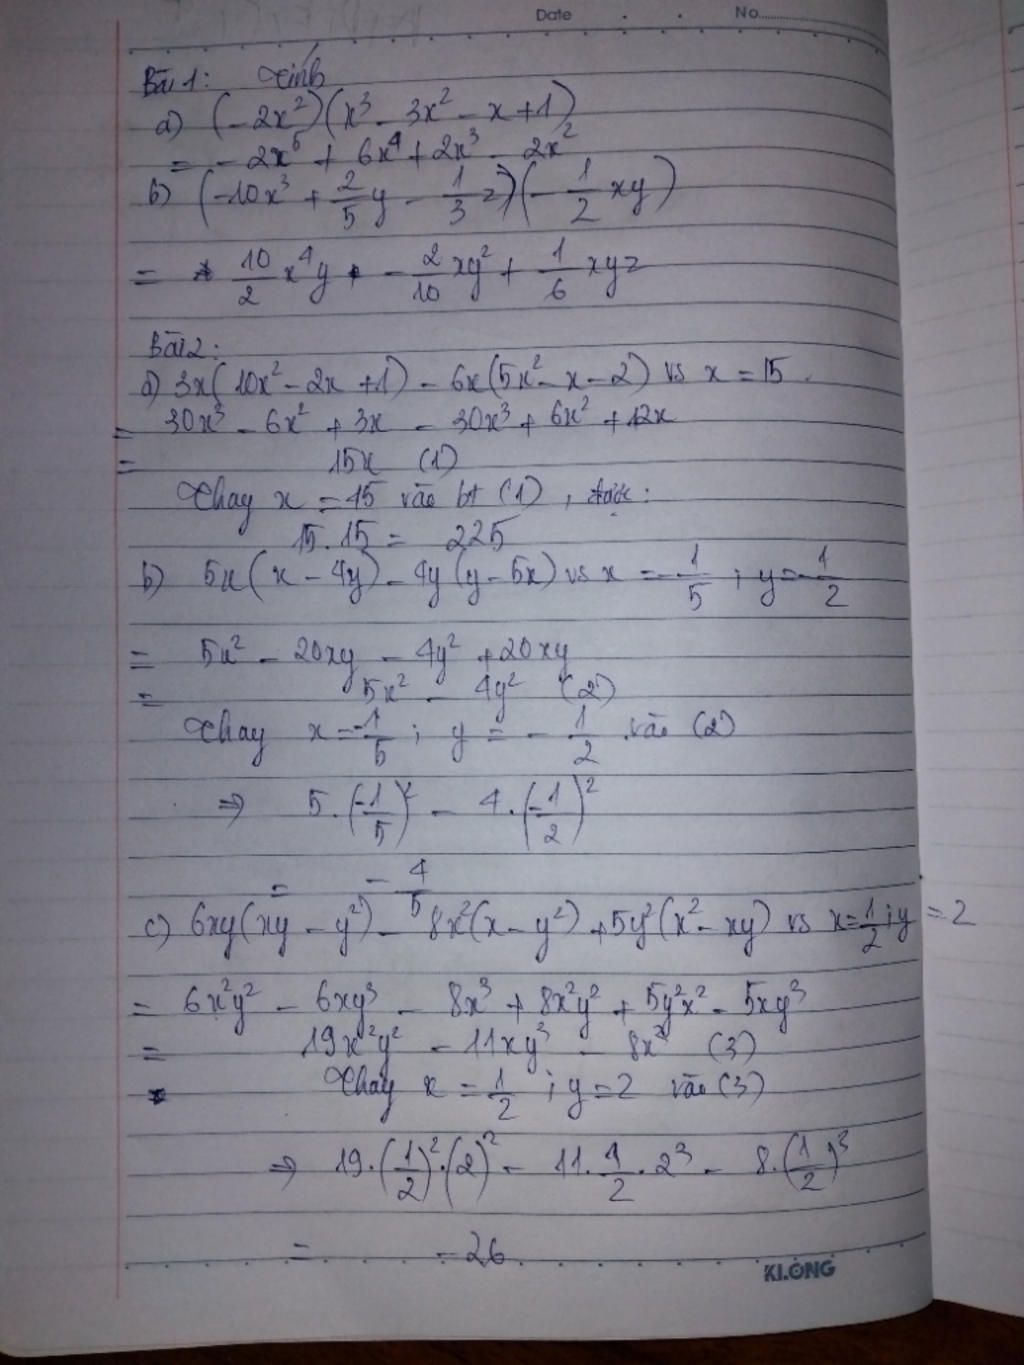 Date No.
Bài 1: Tính
a) (-2x²)(x³ - 3x² - x + 1)
= -2x⁵ + 6x⁴ + 2x³ - 2x²
b) (-10x³ + 2/5 y - 1/3 z)(-1/2 xy)
= 10/2 x⁴y - 2/10 xy² + 1/6 xyz
Bài 2:
a) 3x(10x² - 2x + 1) - 6x(5x² - x - 2) vs x = 15.
= 30x³ - 6x² + 3x - 30x³ + 6x² + 12x
= 15x (1)
Thay x = 15 vào bt (1), được:
15.15 = 225
b) 5x(x - 4y) - 4y(y - 5x) vs x = -1/5 ; y = -1/2
= 5x² - 20xy - 4y² + 20xy
= 5x² - 4y² (2)
Thay x = -1/5 ; y = -1/2 vào (2)
⇒ 5.(-1/5)² - 4.(-1/2)²
= -4/5
c) 6xy(xy - y²) - 8x²(x - y²) + 5y²(x² - xy) vs x = 1/2 ; y = 2
= 6x²y² - 6xy³ - 8x³ + 8x²y² + 5y²x² - 5xy³
= 19x²y² - 11xy³ - 8x³ (3)
Thay x = 1/2 ; y = 2 vào (3)
⇒ 19.(1/2)².(2)² - 11.1/2.2³ - 8.(1/2)³
= -26
KLONG